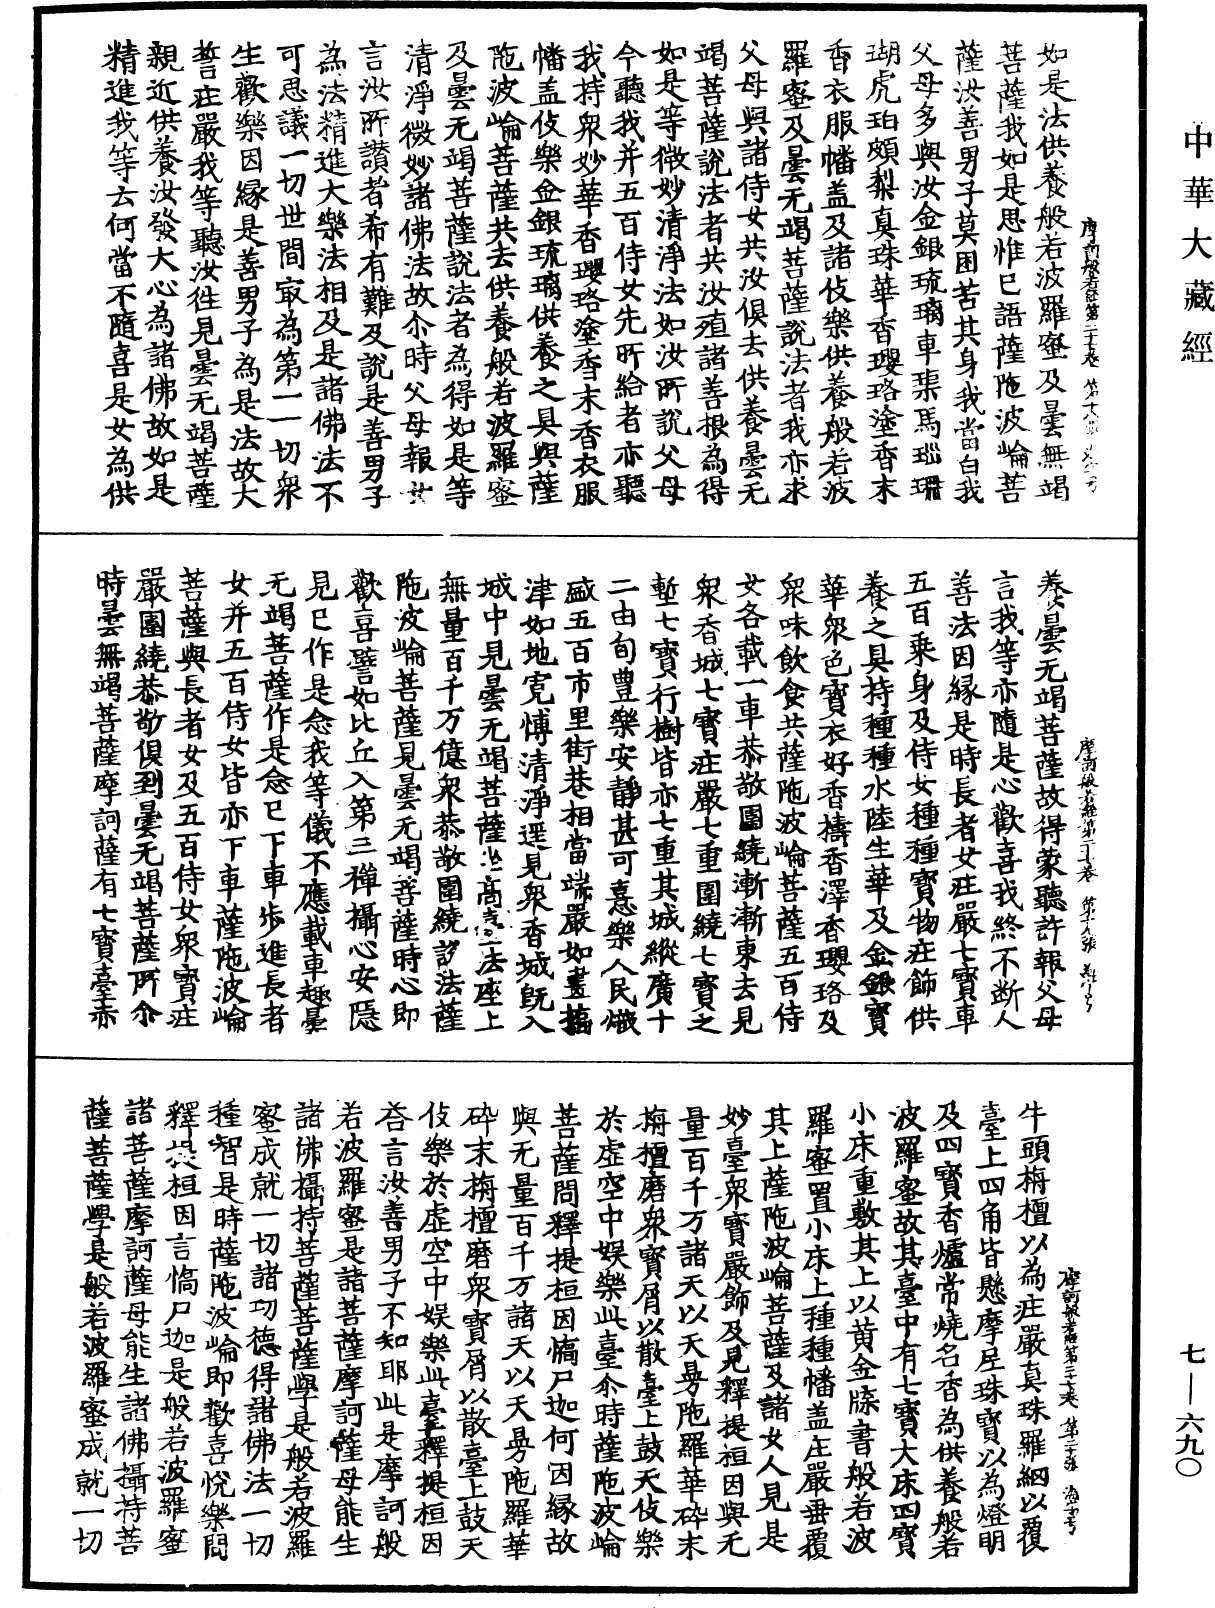 中華大藏經
如是法供養般若波羅蜜及曇無竭
菩薩我如是思惟已語薩陁波崘菩
薩汝善男子莫困苦其身我當白我
父母多與汝金銀琉璃車𤦲馬瑙珊
瑚虎珀頗梨真珠華香瓔珞塗香末
香衣服幡盖及諸伎樂供養般若波
羅蜜及曇无竭菩薩說法者我亦求
父母與諸侍女共汝俱去供養曇无
竭菩薩說法者共汝殖諸善根為得
如是等微妙清淨法如汝所說父母
今聽我并五百侍女先所給者亦聽
我持衆妙華香瓔珞塗香末香衣服
幡盖伎樂金銀琉璃供養之具與薩
陁波崘菩薩共去供養般若波羅蜜
及曇无竭菩薩說法者為得如是等
清淨微妙諸佛法故尒時父母報女
言汝所讚者希有難及說是善男子
為法精進大樂法相及是諸佛法不
可思議一切世間㝡為第一一切衆
生歡樂因緣是善男子為是法故大
誓莊嚴我等聽汝往見曇无竭菩薩
親近供養汝發大心為諸佛故如是
精進我等云何當不隨喜是女為供
摩訶般若經第二十七卷 第十八張
養曇无竭菩薩故得蒙聽許報父母
言我等亦隨是心歡喜我終不断人
善法因緣是時長者女莊嚴七寶車
五百乘身及侍女種種寶物莊飾供
養之具持種種水陸生華及金銀寶
華衆色寶衣好香擣香澤香瓔珞及
衆味飲食共薩陁波崘菩薩五百侍
女各載一車恭敬圍繞漸漸東去見
衆香城七寶莊嚴七重圍繞七寶之
塹七寶行樹皆亦七重其城縱廣十
二由旬豊樂安靜甚可憙樂人民熾
盛五百市里街巷相當端嚴如畫橋
津如地寬博清淨遥見衆香城既入
城中見曇无竭菩薩坐高臺法座上
無量百千万億衆恭敬圍繞說法薩
陁波崘菩薩見曇无竭菩薩時心即
歡喜譬如比丘入第三禪攝心安隱
見已作是念我等儀不應載車趣曇
无竭菩薩作是念已下車步進長者
女并五百侍女皆亦下車薩陁波崘
菩薩與長者女及五百侍女衆寶莊
嚴圍繞恭敬俱到曇无竭菩薩所尒
時曇無竭菩薩摩訶薩有七寶臺赤
摩訶般若經第二十七卷 第十九張
牛頭栴檀以為莊嚴真珠羅網以覆
臺上四角皆懸摩尼珠寶以為燈明
及四寶香爐常燒名香為供養般若
波羅蜜故其臺中有七寶大床四寶
小床重敷其上以黄金牒書般若波
羅蜜置小床上種種幡盖庄嚴垂覆
其上薩陁波崘菩薩及諸女人見是
妙臺衆寶嚴飾及見釋提桓因與无
量百千万諸天以天曼陁羅華碎末
栴檀磨衆寶屑以散臺上鼓天伎樂
於虛空中娯樂此臺尒時薩陁波崘
菩薩問釋提桓因憍尸迦何因緣故
與无量百千万諸天以天曼陁羅華
碎末栴檀磨衆寶屑以散臺上鼓天
伎樂於虛空中娯樂此臺釋提桓因
荅言汝善男子不知耶此是摩訶般
若波羅蜜是諸菩薩摩訶薩母能生
諸佛攝持菩薩菩薩學是般若波羅
蜜成就一切諸功德得諸佛法一切
種智是時薩陁波崘即歡喜悅樂問
釋提桓因言憍尸迦是般若波羅蜜
諸菩薩摩訶薩母能生諸佛攝持菩
薩菩薩學是般若波羅蜜成就一切
摩訶般若經第二十七卷 第二十張
七—六九〇